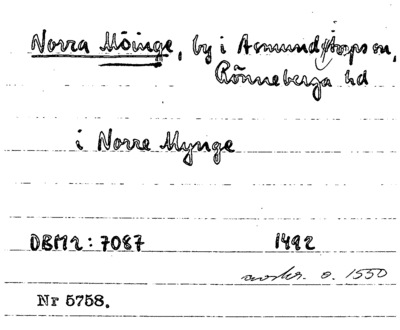 Norra Möinge, by i Asmundtorps sn,
Rönneberga hd
i Norre Mynge
DBM2: 7087 1492
avskr. o. 1550
Nr 5758.